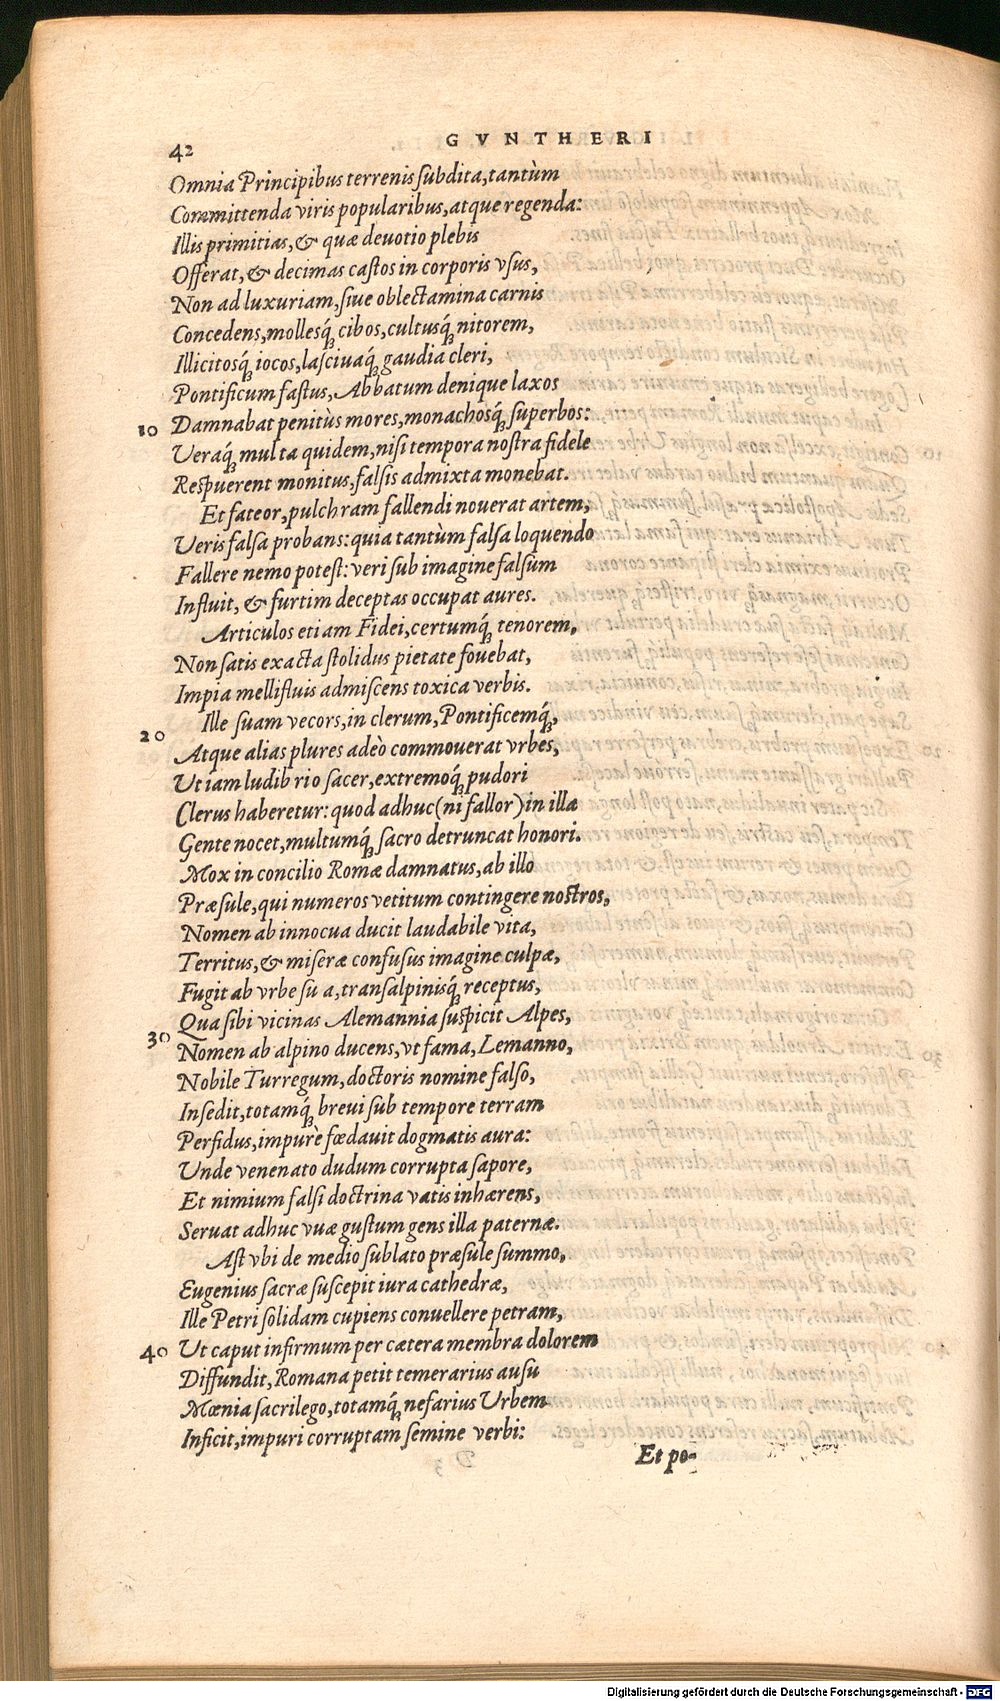 42 GVNTHERI
Omnia Principibus terrenis subdita, tantùm
Committenda viris popularibus, atque regenda:
Illis primitias, & quæ deuotio plebis
Offerat, & decimas castos in corporis vsus,
Non ad luxuriam, siue oblectamina carnis
Concedens, mollesq́; cibos, cultusq́; nitorem,
Illicitosq́; iocos, lasciuaq́; gaudia cleri,
Pontificum fastus, Abbatum denique laxos
10 Damnabat penitùs mores, monachosq́; superbos:
Veraq́; multa quidem, nisi tempora nostra fidele
Respuerent monitus, falsis admixta monebat.
Et fateor, pulchram fallendi nouerat artem,
Veris falsa probans: quia tantùm falsa loquendo
Fallere nemo potest: veri sub imagine falsum
Influit, & furtim deceptas occupat aures.
Articulos etiam Fidei, certumq́; tenorem,
Non satis exacta stolidus pietate fouebat,
Impia mellifluis admiscens toxica verbis.
Ille suam vecors, in clerum, Pontificemq́;,
20 Atque alias plures adeò commouerat vrbes,
Ut iam ludibrio sacer, extremoq́; pudori
Clerus haberetur: quod adhuc (ni fallor) in illa
Gente nocet, multumq́; sacro detruncat honori.
Mox in concilio Romæ damnatus, ab illo
Præsule, qui numeros vetitum contingere nostros,
Nomen ab innocua ducit laudabile vita,
Territus, & miseræ confusus imagine culpæ,
Fugit ab vrbe sua, transalpinisq́; receptus,
Qua sibi vicinas Alemannia suspicit Alpes,
30 Nomen ab alpino ducens, vt fama, Lemanno,
Nobile Turregum, doctoris nomine falso,
Insedit, totamq́; breui sub tempore terram
Perfidus, impurè fœdauit dogmatis aura:
Unde venenato dudum corrupta sapore,
Et nimium falsi doctrina vatis inhærens,
Seruat adhuc vuæ gustum gens illa paternæ.
Ast vbi de medio sublato præsule summo,
Eugenius sacræ suscepit iura cathedræ,
Ille Petri solidam cupiens conuellere petram,
40 Ut caput infirmum per cætera membra dolorem
Diffundit, Romana petit temerarius ausu
Mœnia sacrilego, totamq́; nefarius Urbem
Inficit, impuri corruptam semine verbi:
Et po-
Digitalisierung gefördert durch die Deutsche Forschungsgemeinschaft - DFG